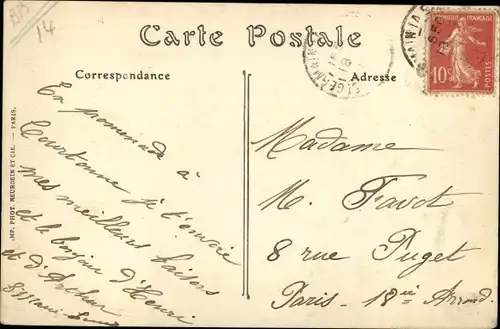 BB
14
Carte Postale
Correspondance
Adresse
ST GERMAIN
REPUBLIQUE FRANÇAISE
10c
POSTES
IMP. PHOT. NEURDEIN ET CIE. — PARIS.
En promenade à
Courbonne je t'envoie
mes meilleurs baisers
et le bonjour d'Henri
et d'Arthur
Madame
M. Favot
8 rue Puget
Paris - 18me Arrond.